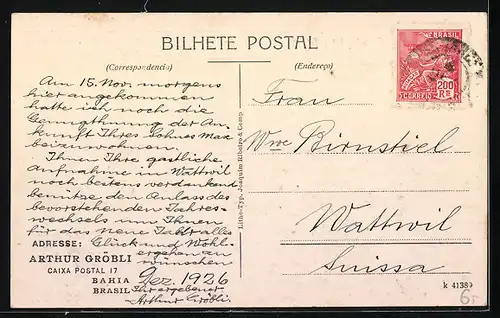 BILHETE POSTAL
(Correspondencia)
(Endereço)
BRASIL
200
Rs
CORREIO
Am 15. Nov. morgens
hier angekommen
hatte ich noch die
Genugthuung der An-
kunft Ihres Sohnes Max
beizuwohnen.
Ihnen Ihre gastliche
Aufnahme in Wattwil
noch bestens verdankend
benütze den Anlass des
bevorstehenden Jahres-
wechsels um Ihnen
für das neue Jahr alles
ADRESSE: Glück und Wohl-
ergehen zu
wünschen
ARTHUR GRÖBLI
CAIXA POSTAL 17
BAHIA
BRASIL
Dez. 1926
Ihr ergebener
Arthur Gröbli.
Litho-Typ. Joaquim Ribeiro & Comp.
Frau
Wwe Birnstiel
Wattwil
Suissa
k 41389
6.